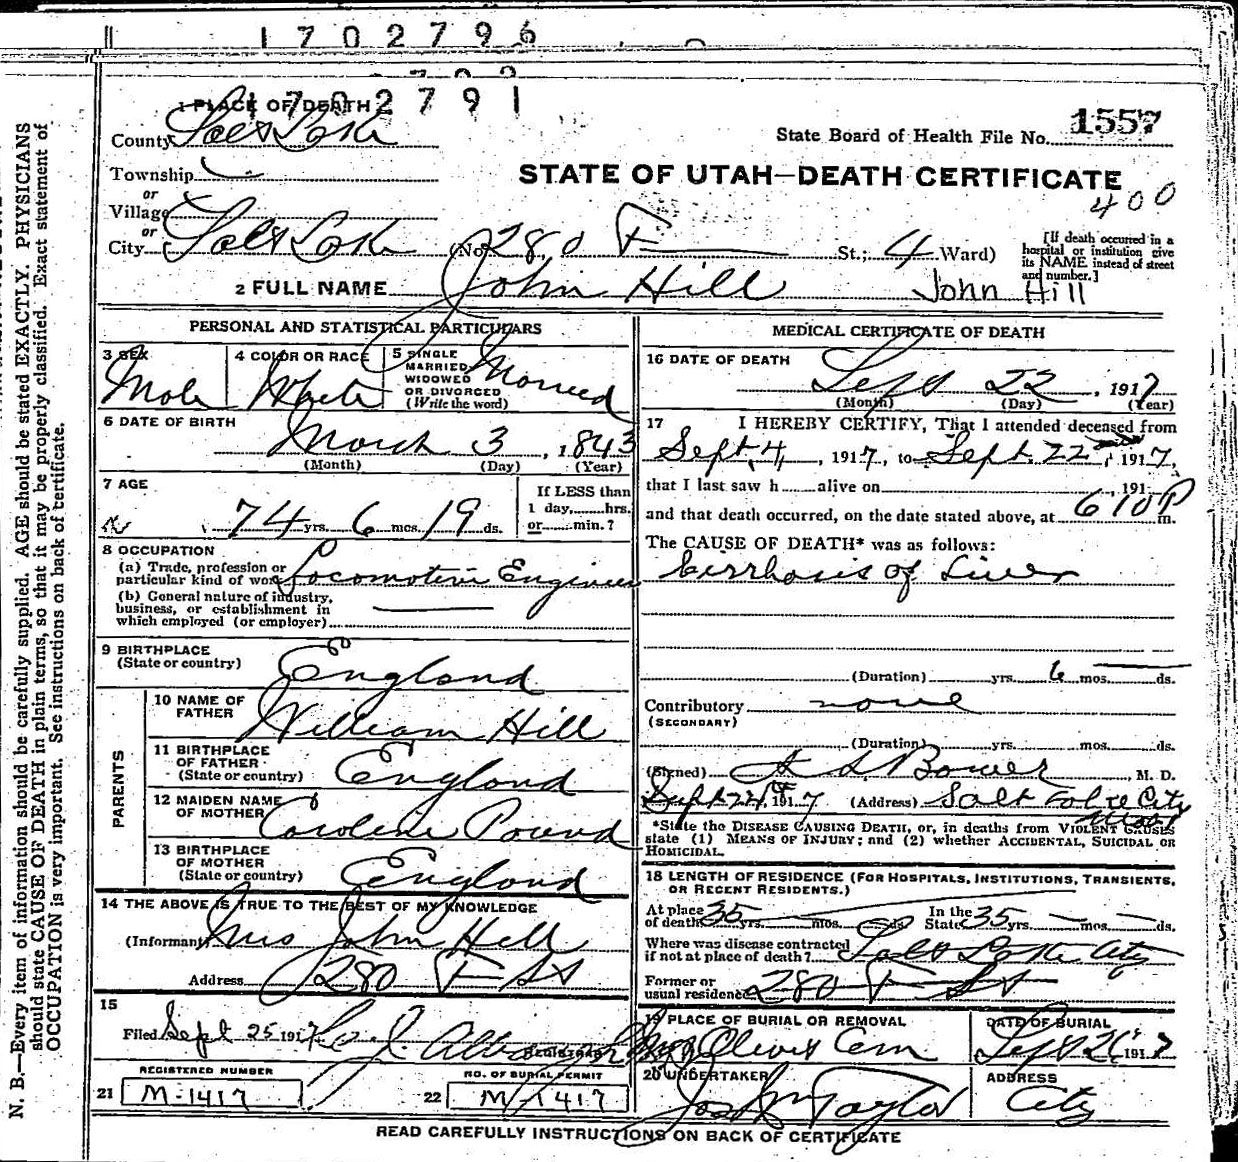 1702796
1702791
1 PLACE OF DEATH
County Salt Lake
State Board of Health File No. 1557
Township
STATE OF UTAH—DEATH CERTIFICATE
400
or
Village
or
City Salt Lake (No. 280 F St.; 4 Ward)
[If death occurred in a hospital or institution give its NAME instead of street and number.]
2 FULL NAME John Hill John Hill
PERSONAL AND STATISTICAL PARTICULARS
3 SEX Male
4 COLOR OR RACE White
5 SINGLE MARRIED WIDOWED OR DIVORCED (Write the word) Married
6 DATE OF BIRTH March 3, 1843
(Month) (Day) (Year)
7 AGE
74 yrs. 6 mos. 19 ds.
If LESS than 1 day, hrs. or min.?
8 OCCUPATION
(a) Trade, profession or particular kind of work Locomotive Engineer
(b) General nature of industry, business, or establishment in which employed (or employer)
9 BIRTHPLACE
(State or country) England
PARENTS
10 NAME OF FATHER William Hill
11 BIRTHPLACE OF FATHER (State or country) England
12 MAIDEN NAME OF MOTHER Caroline Pound
13 BIRTHPLACE OF MOTHER (State or country) England
14 THE ABOVE IS TRUE TO THE BEST OF MY KNOWLEDGE
(Informant) Mrs John Hill
Address 280 F St
15
Filed Sept 25 1917
REGISTRAR
REGISTERED NUMBER
21 M-1417
NO. OF BURIAL PERMIT
22 M-1417
MEDICAL CERTIFICATE OF DEATH
16 DATE OF DEATH
Sept 22, 1917
(Month) (Day) (Year)
17 I HEREBY CERTIFY, That I attended deceased from
Sept. 4, 1917, to Sept. 22, 1917,
that I last saw h alive on 191
and that death occurred, on the date stated above, at 610 P m.
The CAUSE OF DEATH* was as follows:
Cirrhosis of Liver
(Duration) yrs. 6 mos. ds.
Contributory none
(SECONDARY)
(Duration) yrs. mos. ds.
(Signed) Bower, M. D.
Sept 24, 1917 (Address) Salt Lake City
*State the DISEASE CAUSING DEATH, or, in deaths from VIOLENT CAUSES
state (1) MEANS OF INJURY; and (2) whether ACCIDENTAL, SUICIDAL OR
HOMICIDAL.
18 LENGTH OF RESIDENCE (FOR HOSPITALS, INSTITUTIONS, TRANSIENTS,
OR RECENT RESIDENTS.)
At place of death 35 yrs. mos. ds. In the State 35 yrs. mos. ds.
Where was disease contracted if not at place of death? Salt Lake City
Former or usual residence 280 F St
19 PLACE OF BURIAL OR REMOVAL
Olivet Cem
DATE OF BURIAL
Sept 26 1917
20 UNDERTAKER
Taylor
ADDRESS
City
READ CAREFULLY INSTRUCTIONS ON BACK OF CERTIFICATE
N. B.—Every item of information should be carefully supplied. AGE should be stated EXACTLY. PHYSICIANS
should state CAUSE OF DEATH in plain terms, so that it may be properly classified. Exact statement of
OCCUPATION is very important. See instructions on back of certificate.